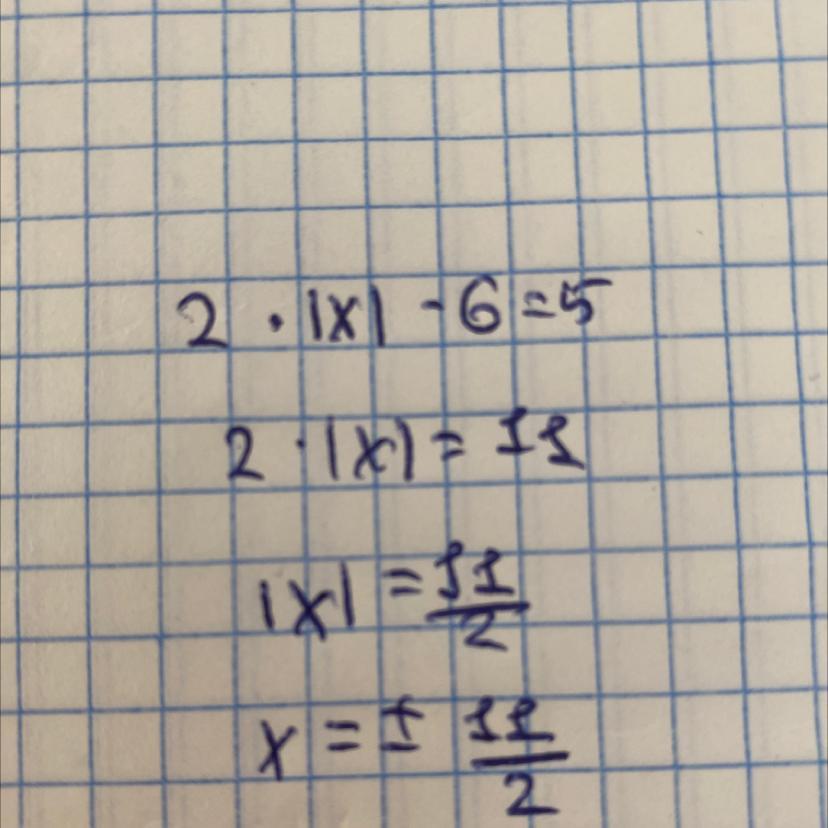 2 · |x| - 6 = 5
2 · |x| = 11
|x| = 11/2
x = ± 11/2